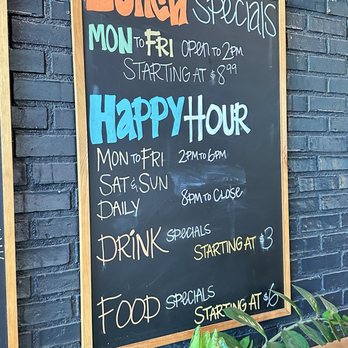 Lunch Specials
MON TO FRI OPEN TO 2PM
STARTING AT $8.99
HAPPY HOUR
MON TO FRI 2PM TO 6PM
SAT & SUN
DAILY 8PM TO CLOSE
DRINK SPECIALS
STARTING AT $3
FOOD SPECIALS
STARTING AT $6